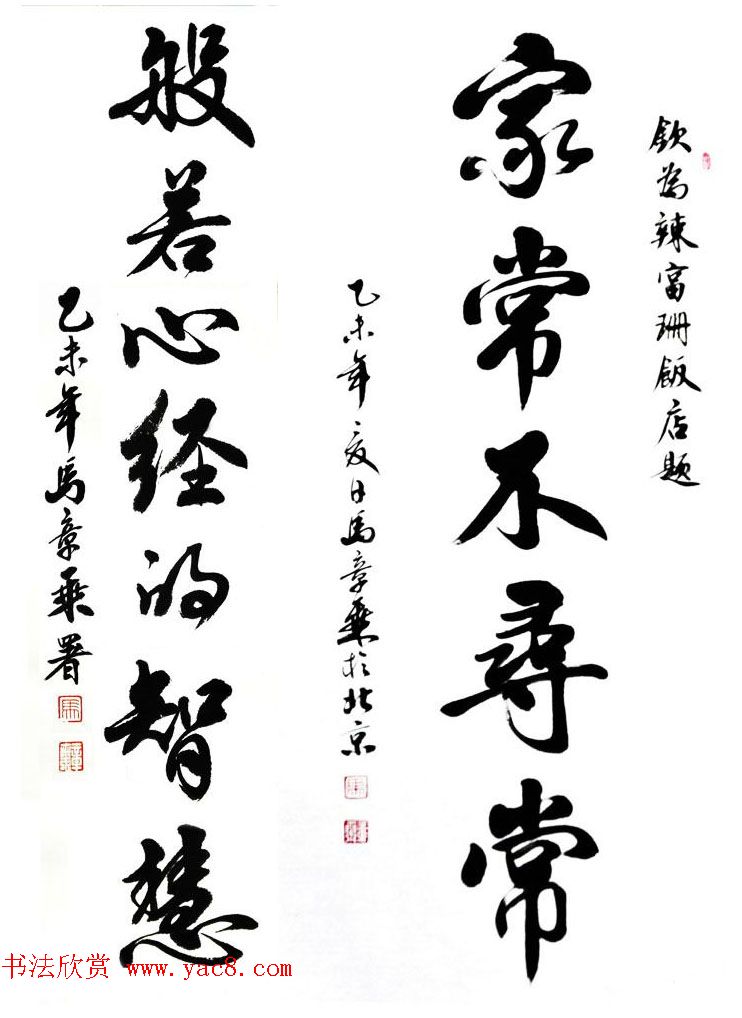 欽為辣富珊飯店题
家常不尋常
乙未年夏日馬章乘於北京
般若心经的智慧
乙未年馬章乘署
书法欣赏 www.yac8.com